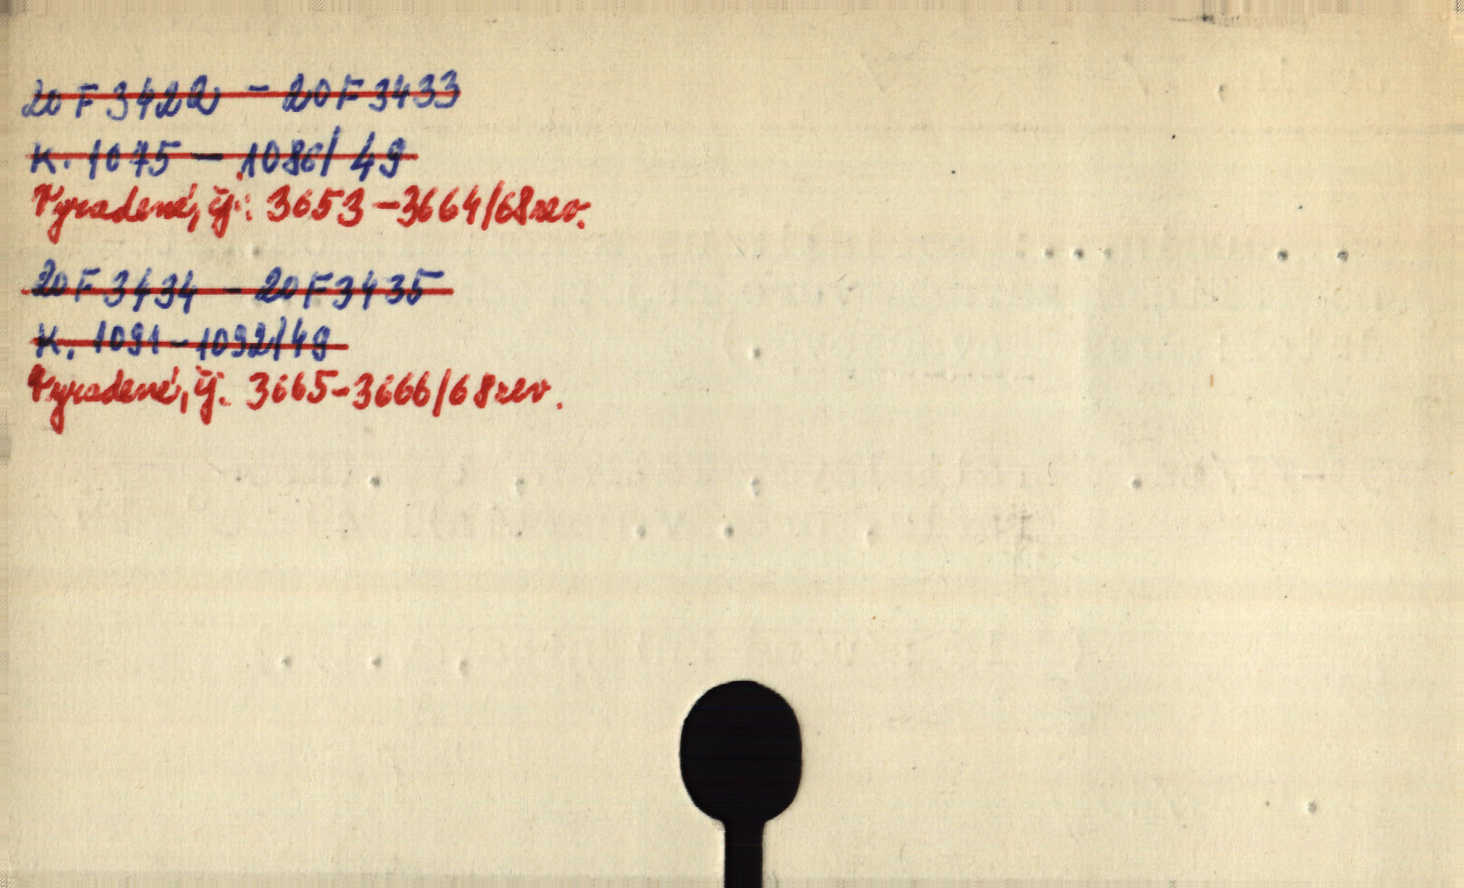 20 F 3422 - 20 F 3433
K. 1075 - 1086/49
Vyradené, čj.: 3653-3664/68 rev.
20 F 3434 - 20 F 3435
K. 1091-1092/49
Vyradené, čj. 3665-3666/68 rev.